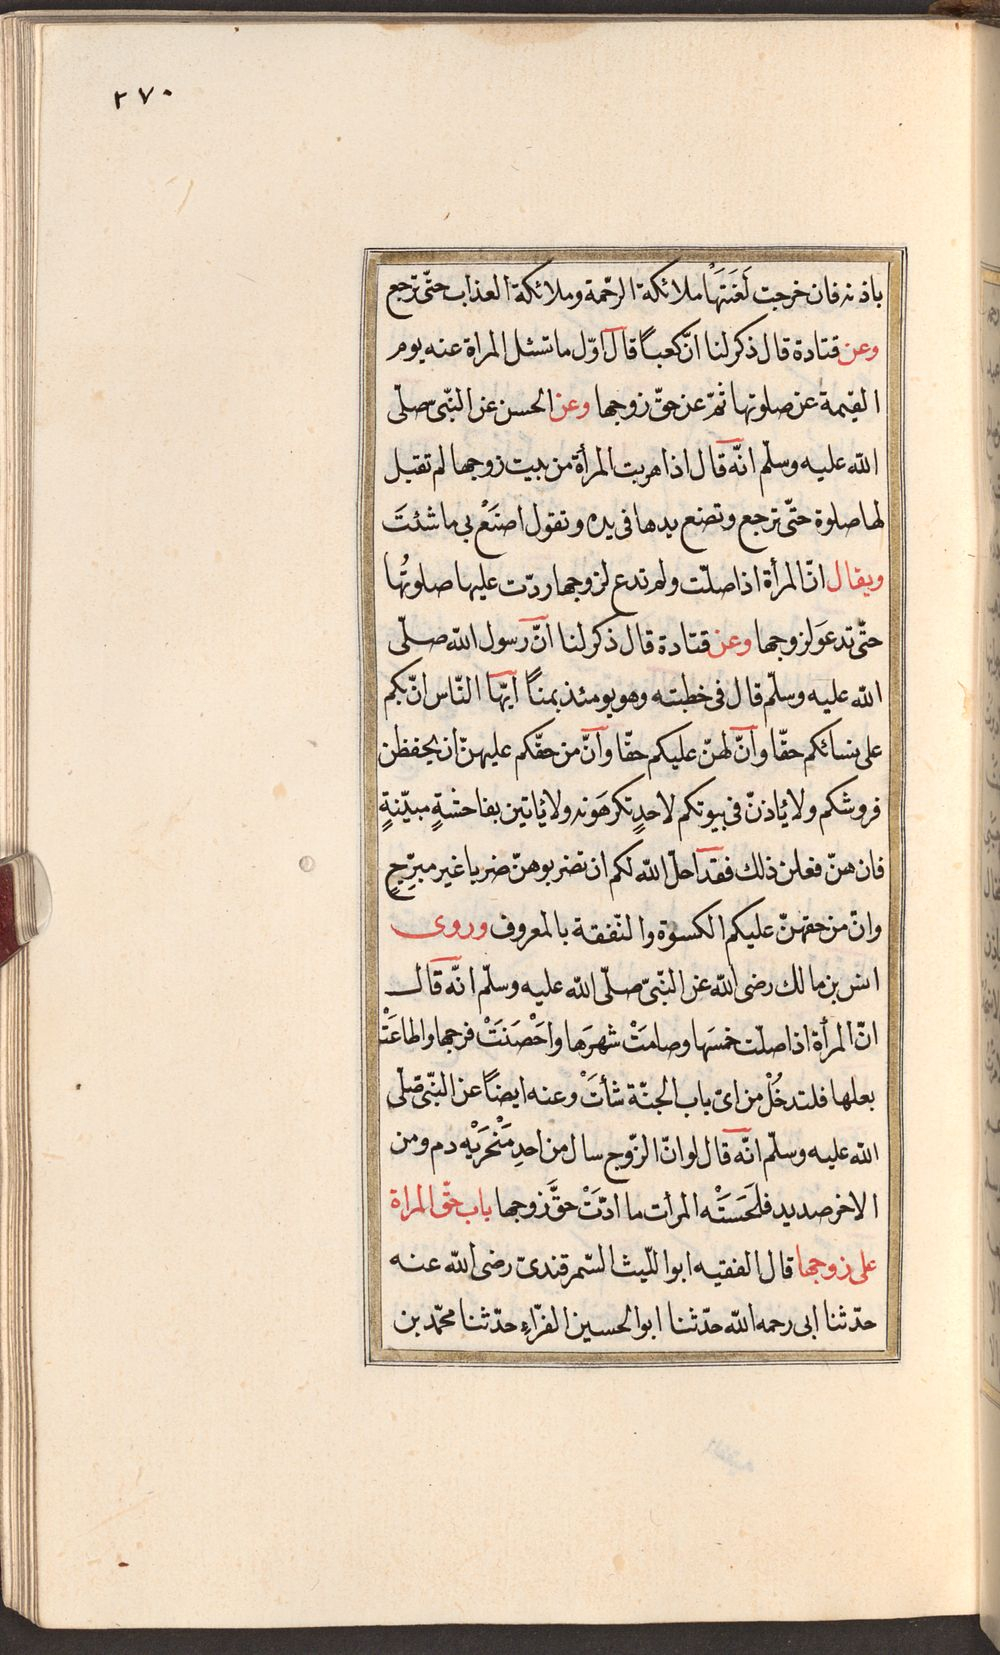 ٢٧٠
باذنه فان خرجت لَعَنَتْهَا ملائكة الرّحمة وملائكة العذاب حتّى ترجع
وعن قتادة قال ذكر لنا انّ كعبًا قال اوّل ما تسئل المراة عنه يوم
القيمة عن صلوتها ثمّ عن حقّ زوجها وعن الحسن عن النّبىّ صلّى
اللّه عليه وسلّم انّه قال اذا هربت المرأة من بيت زوجها لم تقبل
لها صلوة حتّى ترجع وتضع يدها فى يده وتقول اصنَعْ بى ما شئتَ
ويقال انّ المرأة اذا صلّت ولم تدع لزوجها ردّت عليها صلوتُها
حتّى تدعَو لزوجها وعن قتادة قال ذكر لنا انّ رسول اللّه صلّى
اللّه عليه وسلّم قال فى خطبته وهو يومئذ بمنًا ايّها النّاس انّ لكم
على نسائكم حقّا وانّ لهنّ عليكم حقّا وانّ من حقّكم عليهنّ ان يحفظن
فروشكم ولا ئاذنّ فى بيوتكم لاحدٍ تكرهَونه ولا ئاتين بفاحشةٍ مبيّنةٍ
فان هنّ فعلن ذلك فقد احلّ اللّه لكم ان تضربوهنّ ضربا غير مبرّحٍ
وانّ من حقهنّ عليكم الكسوة والنّفقة بالمعروف وروى
انس بن مالك رضى اللّه عن النّبىّ صلّى اللّه عليه وسلّم انّه قال
انّ المرأة اذا صلّت خمسَها وصامَتْ شهرَها واحْصَنَتْ فرجها واطاعَتْ
بعلها فلتدخُلْ من اىّ باب الجنّة شأتْ وعنه ايضًا عن النّبىّ صلّى
اللّه عليه وسلّم انّه قال لو انّ الزّوج سال من احدِ مَنْخَرَيْه دم ومن
الاخر صديد فلَحَسَتْه المرأت ما ادّتْ حقَّ زوجها باب حقّ المراة
على زوجها قال الفقيه ابو اللّيث السّمرقندىّ رضى اللّه عنه
حدّثنا ابى رحمه اللّه حدّثنا ابو الحسين الفرّاء حدّثنا محمّد بن